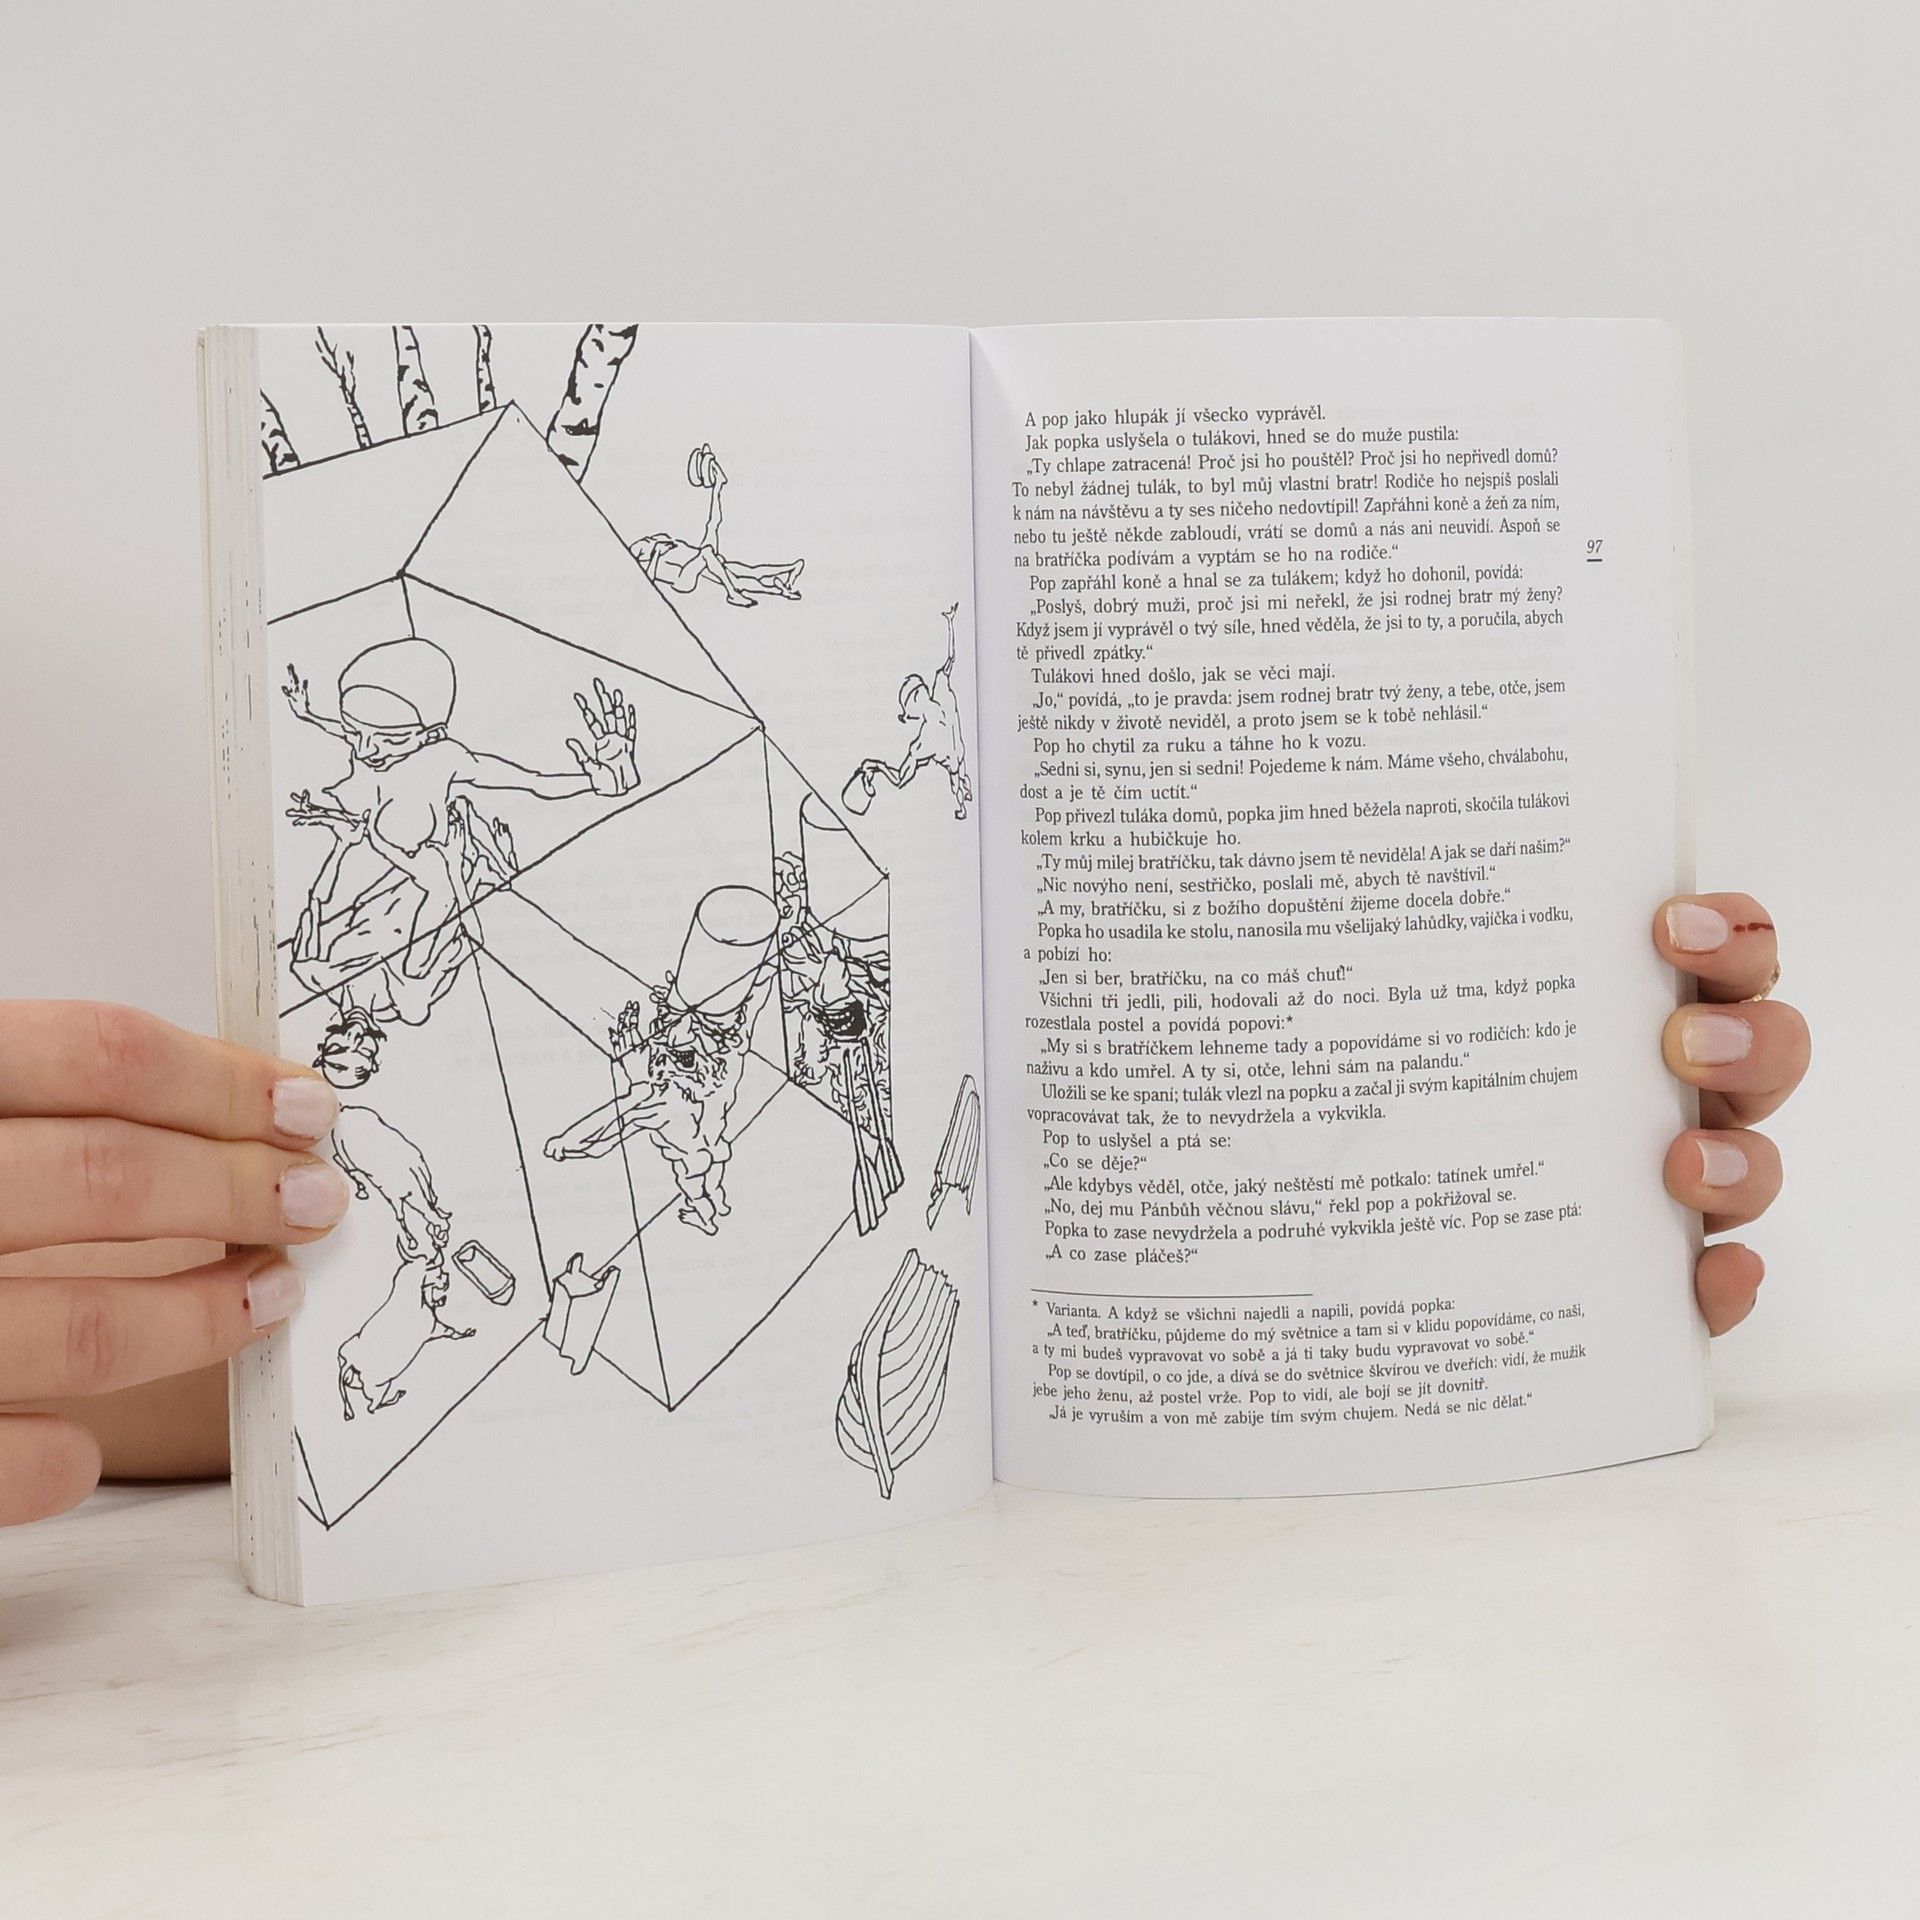 A pop jako hlupák jí všecko vyprávěl.
Jak popka uslyšela o tulákovi, hned se do muže pustila:
„Ty chlape zatracená! Proč jsi ho pouštěl? Proč jsi ho nepřivedl domů?
To nebyl žádnej tulák, to byl můj vlastní bratr! Rodiče ho nejspíš poslali
k nám na návštěvu a ty ses ničeho nedovtípil! Zapřáhni koně a žeň za ním,
nebo tu ještě někde zabloudí, vrátí se domů a nás ani neuvidí. Aspoň se
na bratříčka podívám a vyptám se ho na rodiče.“
97
Pop zapřáhl koně a hnal se za tulákem; když ho dohonil, povídá:
„Poslyš, dobrý muži, proč jsi mi neřekl, že jsi rodnej bratr mý ženy?
Když jsem jí vyprávěl o tvý síle, hned věděla, že jsi to ty, a poručila, abych
tě přivedl zpátky.“
Tulákovi hned došlo, jak se věci mají.
„Jo,“ povídá, „to je pravda: jsem rodnej bratr tvý ženy, a tebe, otče, jsem
ještě nikdy v životě neviděl, a proto jsem se k tobě nehlásil.“
Pop ho chytil za ruku a táhne ho k vozu.
„Sedni si, synu, jen si sedni! Pojedeme k nám. Máme všeho, chválabohu,
dost a je tě čím uctít.“
Pop přivezl tuláka domů, popka jim hned běžela naproti, skočila tulákovi
kolem krku a hubičkuje ho.
„Ty můj milej bratříčku, tak dávno jsem tě neviděla! A jak se daří našim?“
„Nic novýho není, sestřičko, poslali mě, abych tě navštívil.“
„A my, bratříčku, si z božího dopuštění žijeme docela dobře.“
Popka ho usadila ke stolu, nanosila mu všelijaký lahůdky, vajíčka i vodku,
a pobízí ho:
„Jen si ber, bratříčku, na co máš chuť!“
Všichni tři jedli, pili, hodovali až do noci. Byla už tma, když popka
rozestlala postel a povídá popovi:*
„My si s bratříčkem lehneme tady a popovídáme si vo rodičích: kdo je
naživu a kdo umřel. A ty si, otče, lehni sám na palandu.“
Uložili se ke spaní; tulák vlezl na popku a začal ji svým kapitálním chujem
vopracovávat tak, že to nevydržela a vykvikla.
Pop to uslyšel a ptá se:
„Co se děje?“
„Ale kdybys věděl, otče, jaký neštěstí mě potkalo: tatínek umřel.“
„No, dej mu Pánbůh věčnou slávu,“ řekl pop a pokřižoval se.
Popka to zase nevydržela a podruhé vykvikla ještě víc. Pop se zase ptá:
„A co zase pláčeš?“
* Varianta. A když se všichni najedli a napili, povídá popka:
„A teď, bratříčku, půjdeme do mý světnice a tam si v klidu popovídáme, co naši,
a ty mi budeš vypravovat vo sobě a já ti taky budu vypravovat vo sobě.“
Pop se dovtípil, o co jde, a dívá se do světnice škvírou ve dveřích: vidí, že mužik
jebe jeho ženu, až postel vrže. Pop to vidí, ale bojí se jít dovnitř.
„Já je vyruším a von mě zabije tím svým chujem. Nedá se nic dělat.“